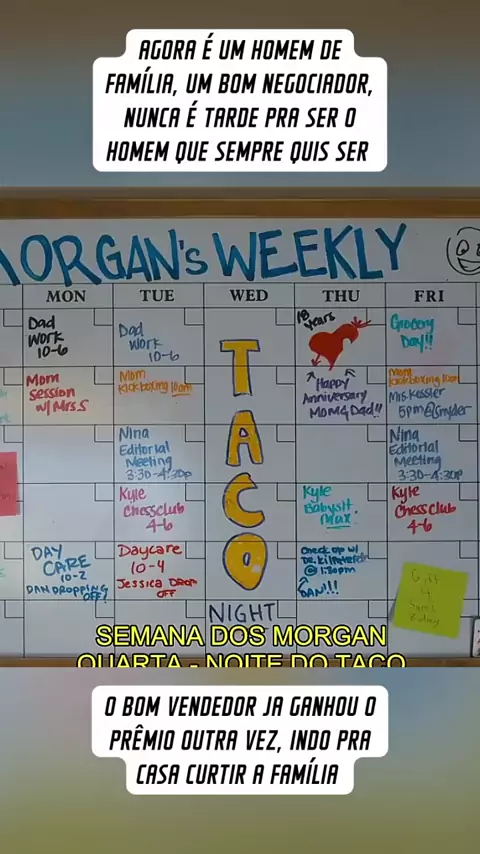 AGORA É UM HOMEM DE
FAMÍLIA, UM BOM NEGOCIADOR,
NUNCA É TARDE PRA SER O
HOMEM QUE SEMPRE QUIS SER
MORGAN's WEEKLY
MON TUE WED THU FRI
Dad
Work
10-6
Dad
Work
10-6
18
Years
Grocery
Day!!
Mom
Session
w/Mrs.S
Mom
Kickboxing 10am
Happy
Anniversary
MOM & Dad!!
Mom
Kickboxing 10am
Ms. Kessler
5pm @Snyder
Nina
Editorial
Meeting
3:30-4:30p
Nina
Editorial
Meeting
3:30-4:30p
Kyle
Chess club
4-6
Kyle
Babysit
Max
Kyle
Chess club
4-6
DAY
CARE
10-2
DAN DROPPING
OFF!
Daycare
10-4
Jessica DROP
OFF
Check up w/
@ 1:30pm
DAN!!!
Gift
4
TACO
NIGHT
SEMANA DOS MORGAN
QUARTA - NOITE DO TACO
O BOM VENDEDOR JA GANHOU O
PRÊMIO OUTRA VEZ, INDO PRA
CASA CURTIR A FAMÍLIA